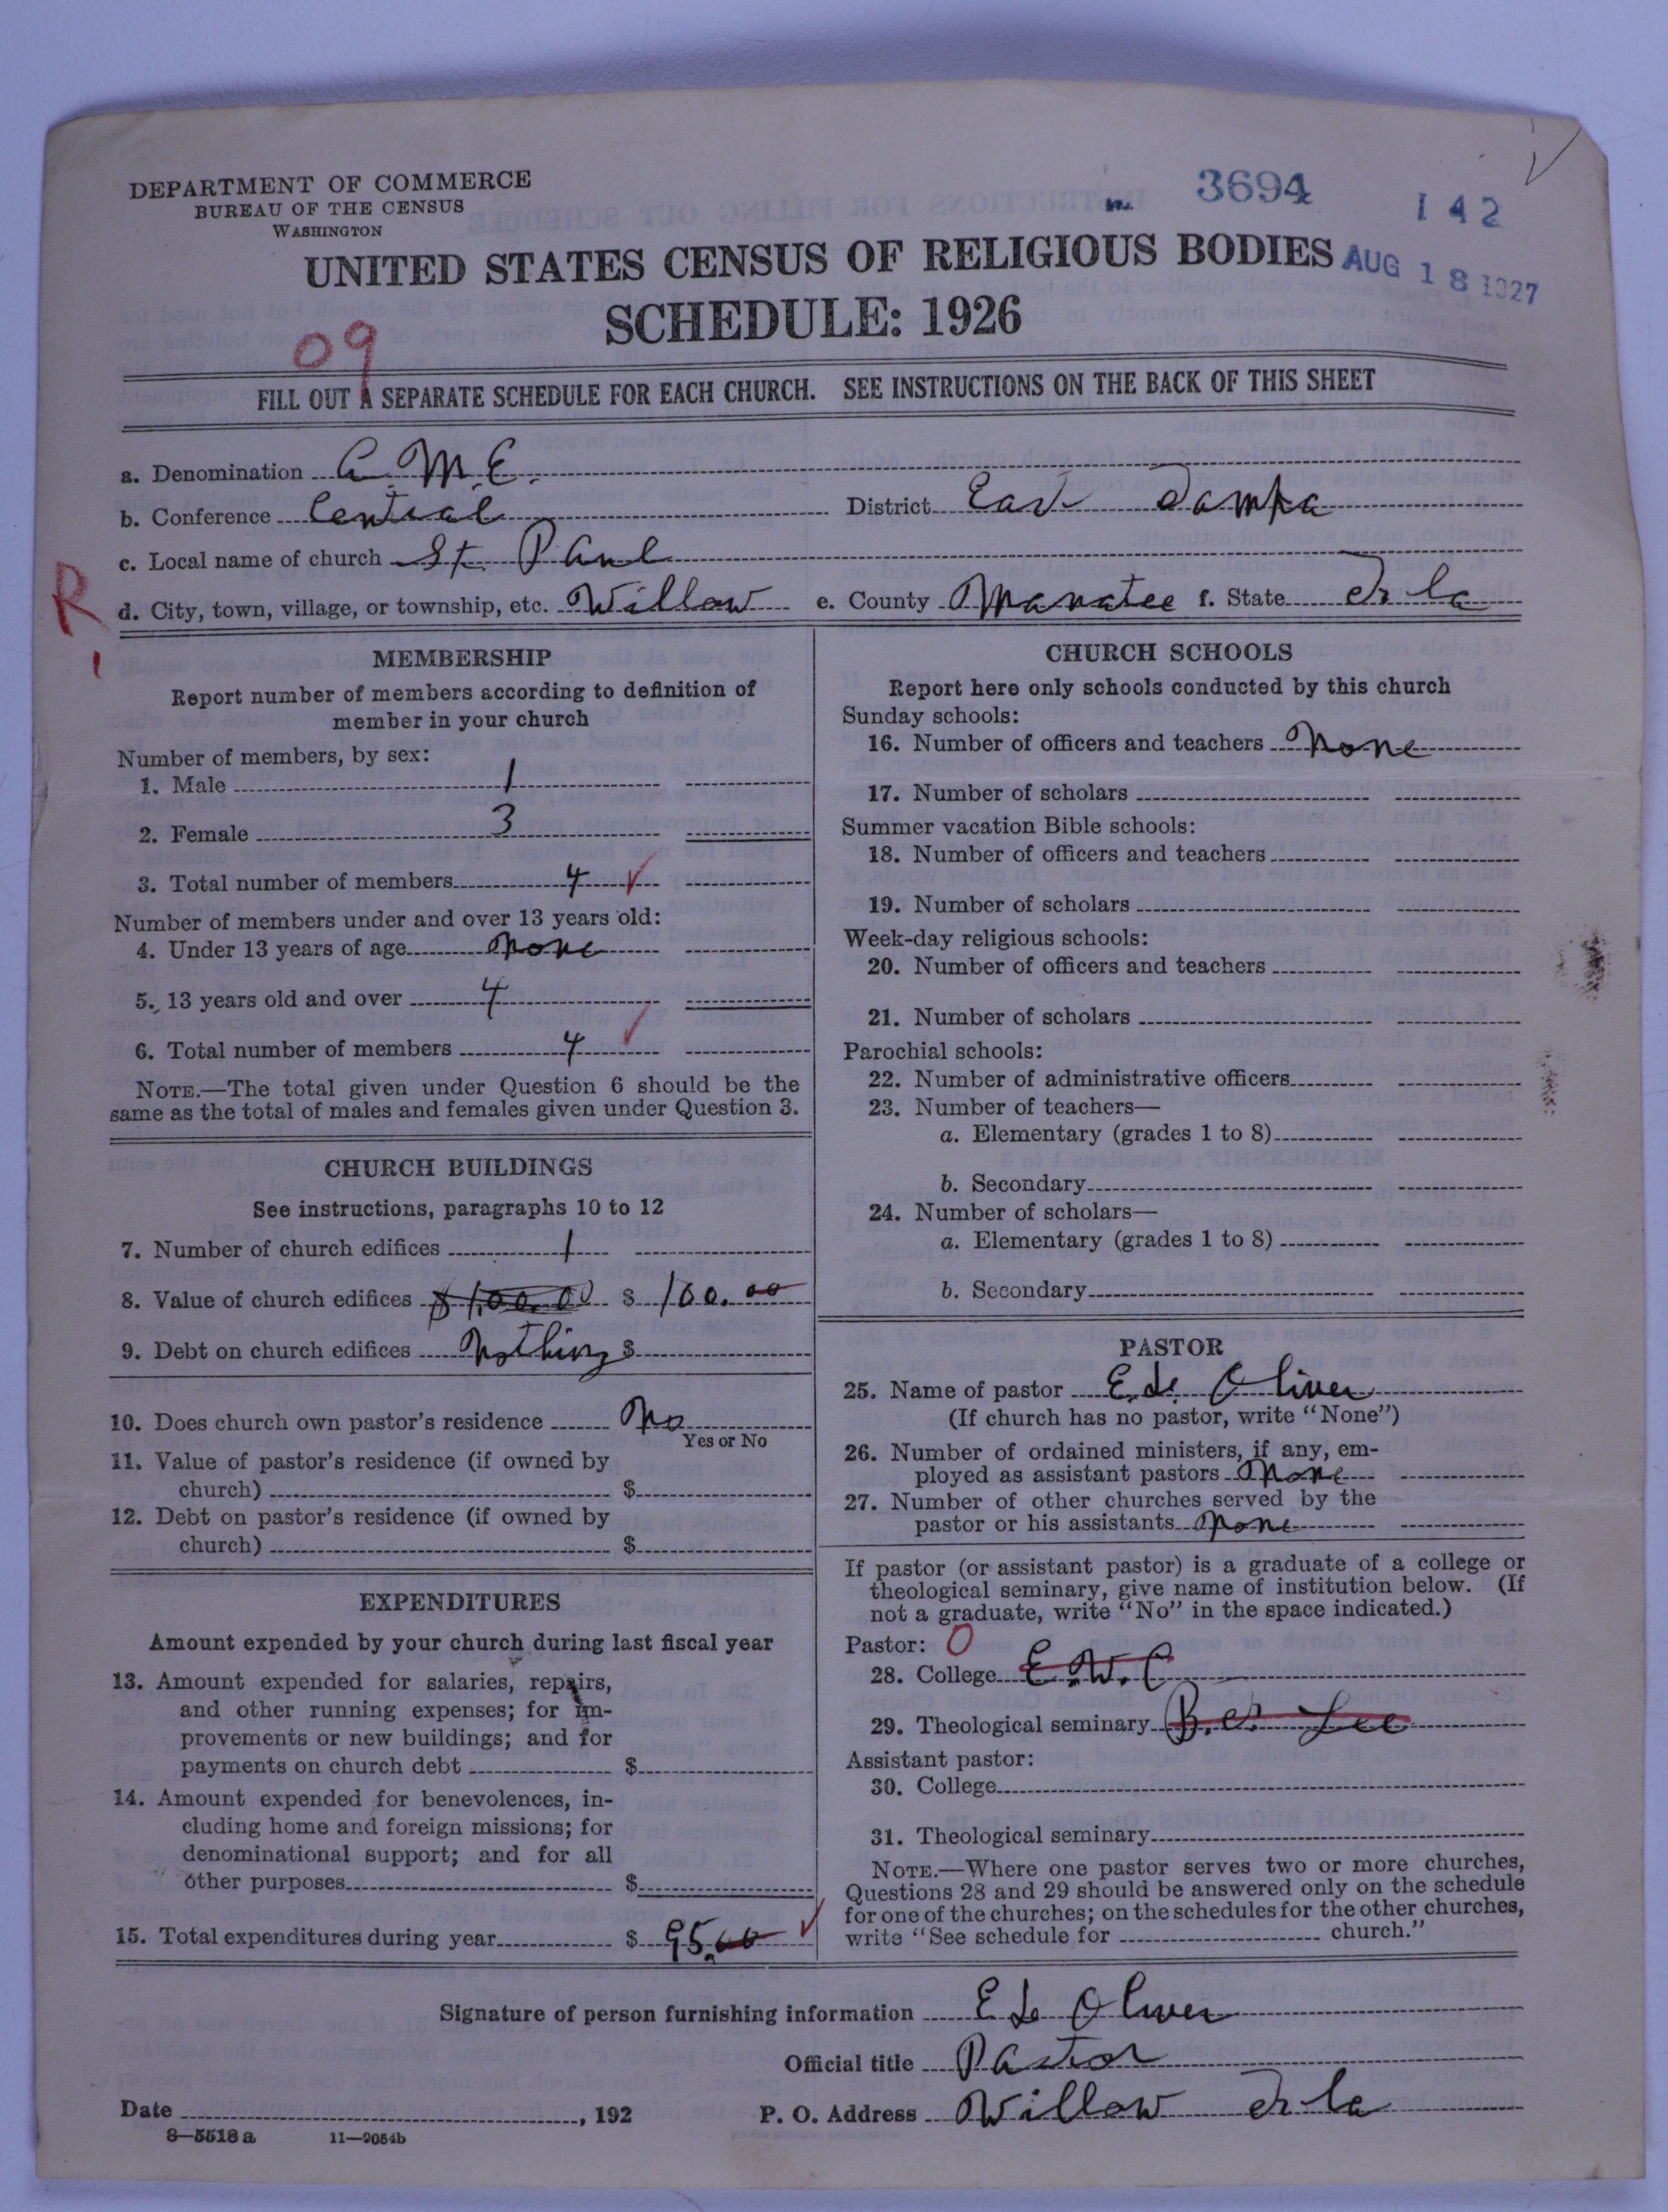 DEPARTMENT OF COMMERCE
BUREAU OF THE CENSUS
WASHINGTON
3694
142
UNITED STATES CENSUS OF RELIGIOUS BODIES
AUG 18 1927
SCHEDULE: 1926
09
FILL OUT A SEPARATE SCHEDULE FOR EACH CHURCH. SEE INSTRUCTIONS ON THE BACK OF THIS SHEET
a. Denomination A. M. E.
b. Conference Central District East Tampa
c. Local name of church St. Paul
R
d. City, town, village, or township, etc. Willow e. County Manatee f. State Fla
MEMBERSHIP
Report number of members according to definition of
member in your church
Number of members, by sex:
1. Male 1
2. Female 3
3. Total number of members 4
Number of members under and over 13 years old:
4. Under 13 years of age None
5. 13 years old and over 4
6. Total number of members 4
NOTE.—The total given under Question 6 should be the
same as the total of males and females given under Question 3.
CHURCH BUILDINGS
See instructions, paragraphs 10 to 12
7. Number of church edifices 1
8. Value of church edifices $100.00 $ 100.00
9. Debt on church edifices Nothing $
10. Does church own pastor's residence No
Yes or No
11. Value of pastor's residence (if owned by
church) $
12. Debt on pastor's residence (if owned by
church) $
EXPENDITURES
Amount expended by your church during last fiscal year
13. Amount expended for salaries, repairs,
and other running expenses; for im-
provements or new buildings; and for
payments on church debt $
14. Amount expended for benevolences, in-
cluding home and foreign missions; for
denominational support; and for all
other purposes $
15. Total expenditures during year $ 95.00
CHURCH SCHOOLS
Report here only schools conducted by this church
Sunday schools:
16. Number of officers and teachers None
17. Number of scholars
Summer vacation Bible schools:
18. Number of officers and teachers
19. Number of scholars
Week-day religious schools:
20. Number of officers and teachers
21. Number of scholars
Parochial schools:
22. Number of administrative officers
23. Number of teachers—
a. Elementary (grades 1 to 8)
b. Secondary
24. Number of scholars—
a. Elementary (grades 1 to 8)
b. Secondary
PASTOR
25. Name of pastor E. L. Oliver
(If church has no pastor, write "None")
26. Number of ordained ministers, if any, em-
ployed as assistant pastors None
27. Number of other churches served by the
pastor or his assistants None
If pastor (or assistant pastor) is a graduate of a college or
theological seminary, give name of institution below. (If
not a graduate, write "No" in the space indicated.)
Pastor: O
28. College E. W. C
29. Theological seminary B. F. Lee
Assistant pastor:
30. College
31. Theological seminary
NOTE.—Where one pastor serves two or more churches,
Questions 28 and 29 should be answered only on the schedule
for one of the churches; on the schedules for the other churches,
write "See schedule for church."
Signature of person furnishing information E L Oliver
Official title Pastor
Date , 192 P. O. Address Willow Fla
8—5518 a 11—9054b